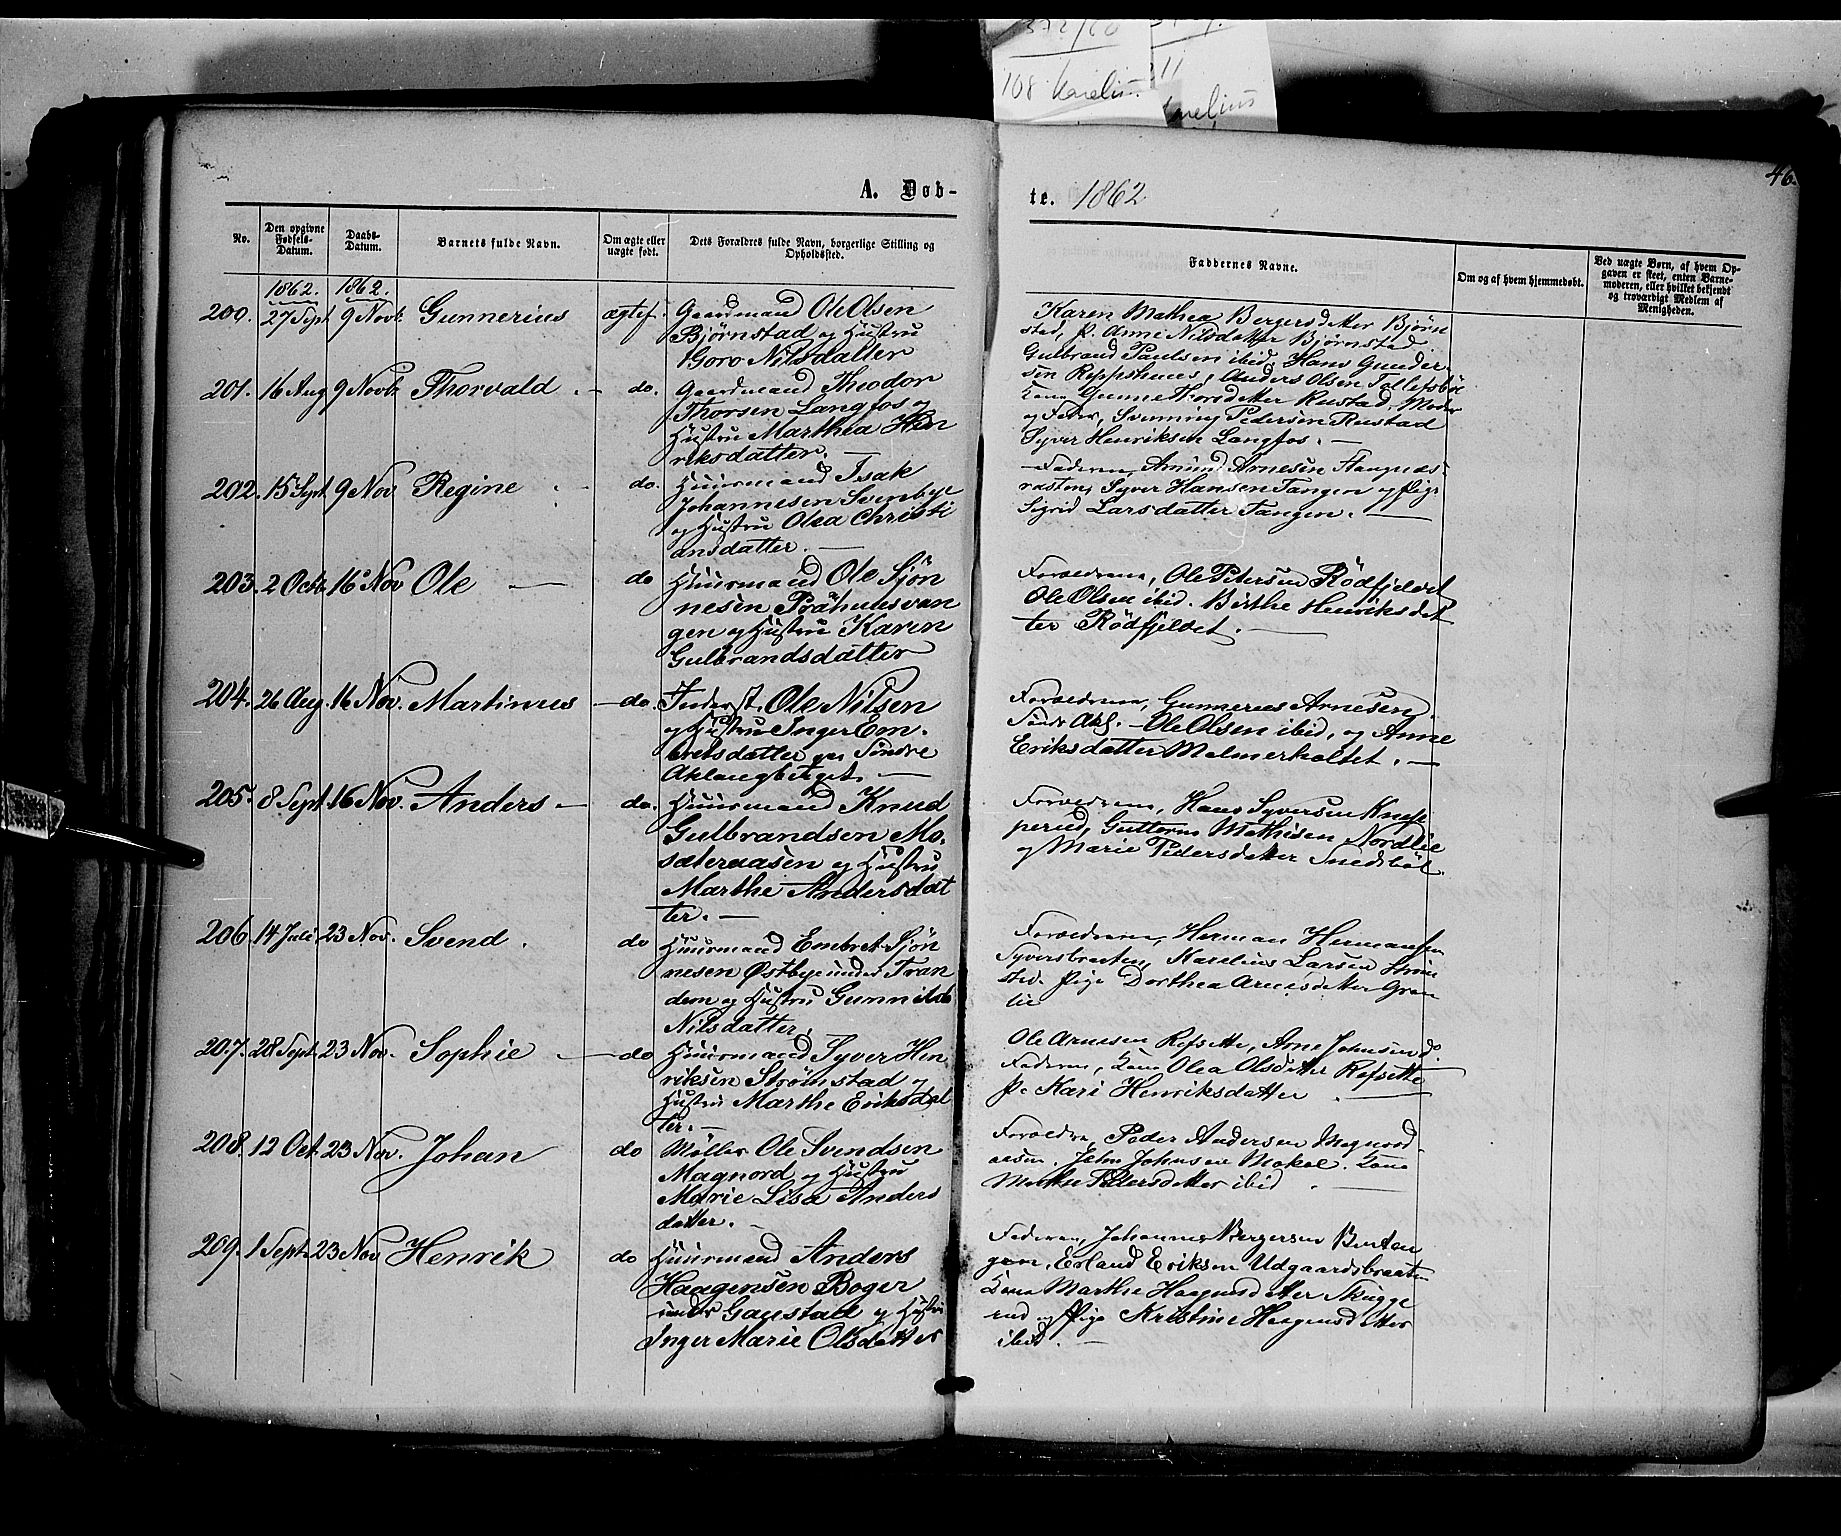 372/60
108 Karelius 11
Karelius
46.
A. Døb-
te. 1862
No.
Den opgivne Fødsels-Datum.
Daabs-Datum.
Barnets fulde Navn.
Om ægte eller uægte født.
Dets Forældres fulde Navn, borgerlige Stilling og Opholdssted.
Faddernes Navne.
Om og af hvem hjemmedøbt.
Ved uægte Børn, af hvem Op-
gaven er skeet, enten Barne-
moderen, eller hvilket bekjendt
og troværdigt Medlem af
Menigheden.
1862. 1862.
200. 27 Sept 9 Novb. Gunnerius ægtef. Gaardmand Ole Olsen
Bjørnstad og Hustru
Goro Nilsdatter
Karen Mathea Bergersdatter Bjørn
stad, P. Anne Nilsdatter Bjørnstad
Gulbrand Paulsen ibid, Hans Gunder
sen Reppshuus, Anders Olsen Tollefsbøl
201. 16 Aug 9 Novb Thorvald do. Gaardmand Theodor
Thorsen Langfos og
Hustru Marthea Hen
riksdatter. —
Kone Gunne Thorsdatter Rustad, Moder
og Fader, Svenning Pedersen Rustad
Syver Henriksen Langfos. —
202. 15 Sept 9 Nov Regine do. Huusmand Isak
Johannesen Svenbye
og Hustru Olea Christi
ansdatter. —
Faderen, Amund Arnesen
Syver Hansen Tangen og Pige
Sigrid Larsdatter Tangen. —
203. 2 Octb. 16 Nov Ole — do Huusmand Ole Sjøn
nesen Praahuusvan
gen og Hustru Karen
Gulbrandsdatter
Forældrene, Ole Petersen Rödfjeldet
Ole Olsen ibid. Birthe Henriksdat
ter Rödfjeldet. —
204. 26 Aug. 16 Nov. Martinus — do. Inderst. Ole Nilsen
og Hustru Inger Em.
bretsdatter paa Søndre
Aklangberget. —
Forældrene, Gunnerius Arnesen
Søndr Akl. — Ole Olsen ibid, og Anne
Eriksdatter Malmerholtet. —
205. 8 Sept. 16 Nov. Anders — do. Huusmand Knud
Gulbrandsen Mo.
sæteraasen og Hustru
Marthe Andersdat
ter. —
Forældrene, Hans Syversen Knap
perud, Guttorm Mathisen Nordlie
og Marie Pedersdatter Snedsböl.
206. 14 Juli 23 Nov. Svend. do Huusmand Embret Sjön
nesen Østbye under Tran
dem og Hustru Gunnilde
Nilsdatter.
Forældrene, Herman Hermansen
Syversbraaten, Karelius Larsen Ström
sted. Pige Dorthea Arnesdatter Gran
lie
207. 28 Sept. 23 Nov. Sophie — do Huusmand Syver Hen
riksen Strømstad og
Hustru Marthe Eriksdat
ter. —
Ole Arnesen Refsette, Arne Johnsen d.
Faderen, Kone Olea Olsdatter Refsette
P. Kari Henriksdatter. —
208. 12 Oct. 23 Nov. Johan do Møller Ole Svendsen
Magnord og Hustru
Marie Lisa Anders
datter. —
Forældre, Peder Andersen Magnord
aasen. John Johnsen Mokol. Kone
Marthe Pedersdatter ibid. —
209. 1 Sept. 23 Nov Henrik do Huusmand Anders
Haagensen Boger
under Gaustad og Hustru
Inger Marie Olsdatter
Faderen, Johannes Bergersen Braaten
gen, Erland Eriksen Udgaardsbraaten
Kone Marthe Haagensdatter Skugge
rud og Pige Kristine Haagensdatter
ibid. —